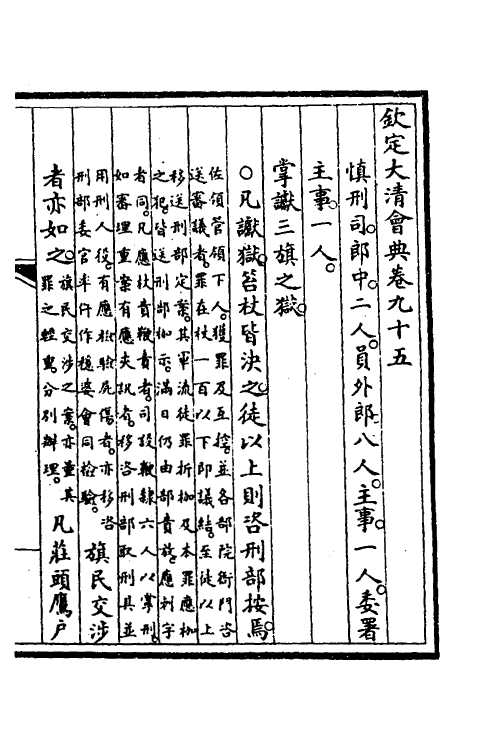 欽定大清會典卷九十五
慎刑司郎中二人員外郎八人主事一人委署
主事一人
掌讞三旗之獄
○凡讞獄笞杖皆決之徒以上則咨刑部按焉
佐領管領下人獲罪及互控並各部院衙門咨
送審議者罪在杖一百以下即議結至徒以上
移送刑部定案其軍流徒罪折枷及本罪應枷
之犯皆送刑部枷示滿日仍由部責放應刺字
者同凡應杖責鞭責者司設鞭隸六人以掌刑
如審理重案有應夾訊者移咨刑部取刑具並
用刑人役有應檢驗屍傷者亦移咨
刑部委官率仵作穩婆會同檢驗
旗民交涉
者亦如之
旗民交涉之案亦量其
罪之輕重分別辦理
凡莊頭鷹戶